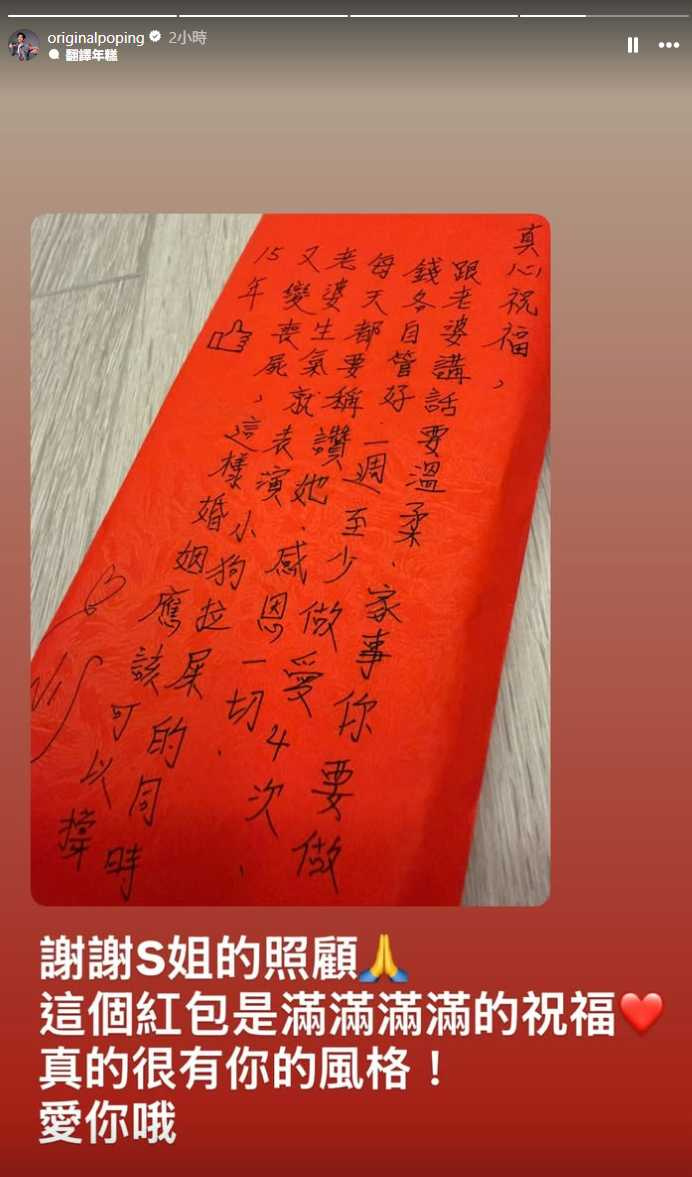 originalpoping 2小時
翻譯年糕
真心祝福，
跟老婆講話要溫柔、家事你要做
錢各自管好一週至少做愛4次、
每天都要稱讚她、感恩一切、
老婆生氣就表演小狗拉屎的同時
又變喪屍，這樣婚姻應該可以撐
15年
謝謝S姐的照顧🙏
這個紅包是滿滿滿滿的祝福❤️
真的很有你的風格！
愛你哦